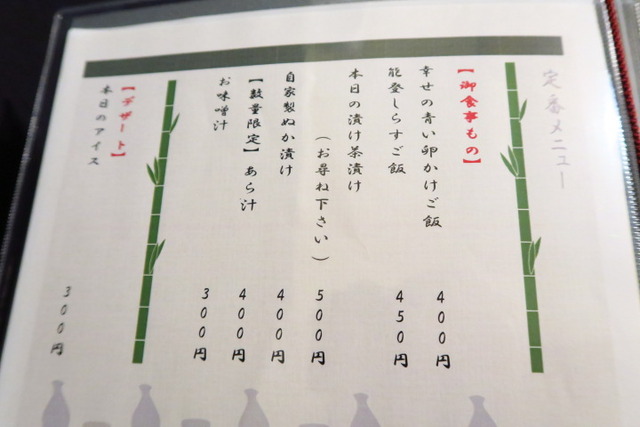 定番メニュー
【御食事もの】
幸せの青い卵かけご飯 400円
能登しらすご飯 450円
本日の漬け茶漬け
(お尋ね下さい) 500円
自家製ぬか漬け 400円
【数量限定】あら汁 400円
お味噌汁 300円
【デザート】
本日のアイス 300円